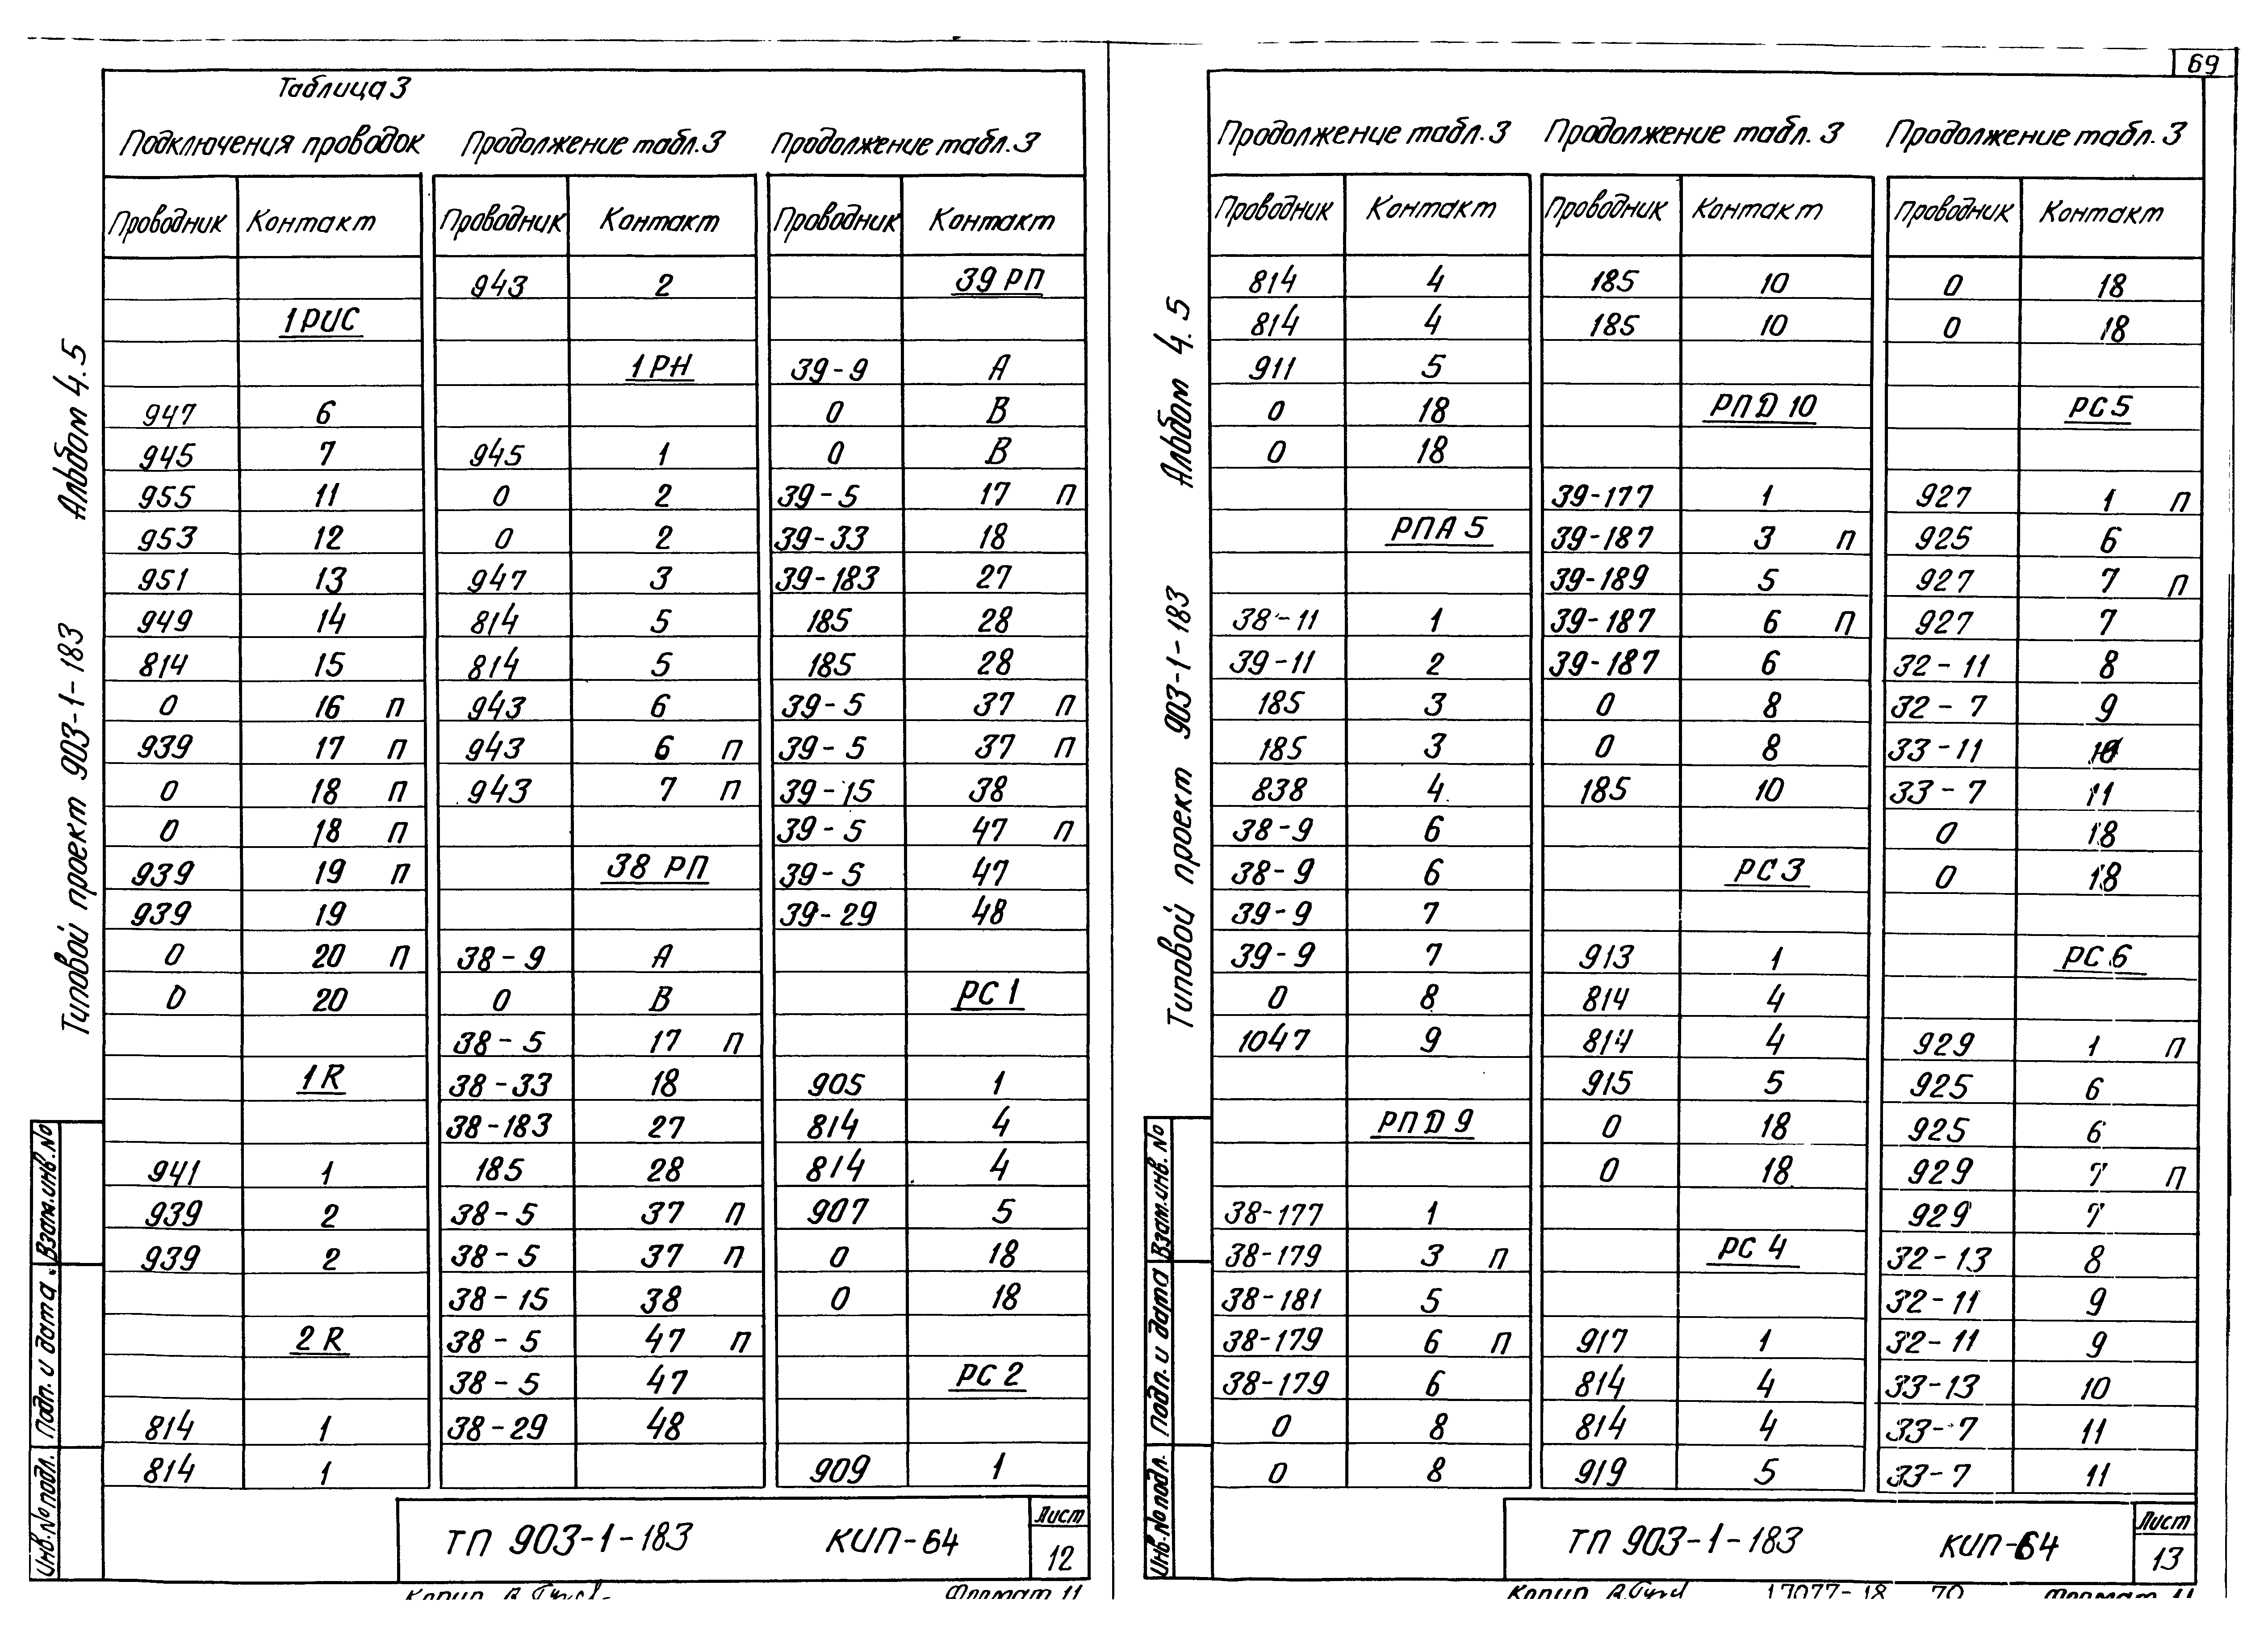 69
Таблица 3
Подключения проводок
Проводник Контакт
1РИС
947 6
945 7
955 11
953 12
951 13
949 14
814 15
0 16 п
939 17 п
0 18 п
0 18 п
939 19 п
939 19
0 20 п
0 20
1R
941 1
939 2
939 2
2R
814 1
814 1
Продолжение табл.3
Проводник Контакт
943 2
1РН
945 1
0 2
0 2
947 3
814 5
814 5
943 6
943 6 п
943 7 п
38 РП
38-9 А
0 В
38-5 17 п
38-33 18
38-183 27
185 28
38-5 37 п
38-5 37 п
38-15 38
38-5 47 п
38-5 47
38-29 48
Продолжение табл.3
Проводник Контакт
39 РП
39-9 А
0 В
0 В
39-5 17 п
39-33 18
39-183 27
185 28
185 28
39-5 37 п
39-5 37 п
39-15 38
39-5 47 п
39-5 47
39-29 48
РС 1
905 1
814 4
814 4
907 5
0 18
0 18
РС 2
909 1
Альбом 4.5
Типовой проект 903-1-183
Взам.инв.№
Подп. и дата
Инв.№ подл.
ТП 903-1-183 КИП-64
Лист
12
Копир. Формат 11
Продолжение табл.3
Проводник Контакт
814 4
814 4
911 5
0 18
0 18
РПА 5
38-11 1
39-11 2
185 3
185 3
838 4
38-9 6
38-9 6
39-9 7
39-9 7
0 8
1047 9
РПД 9
38-177 1
38-179 3 п
38-181 5
38-179 6 п
38-179 6
0 8
0 8
Продолжение табл.3
Проводник Контакт
185 10
185 10
РПД 10
39-177 1
39-187 3 п
39-189 5
39-187 6 п
39-187 6
0 8
0 8
185 10
РС 3
913 1
814 4
814 4
915 5
0 18
0 18
РС 4
917 1
814 4
814 4
919 5
Продолжение табл.3
Проводник Контакт
0 18
0 18
РС 5
927 1 п
925 6
927 7 п
927 7
32-11 8
32-7 9
33-11 10
33-7 11
0 18
0 18
РС 6
929 1 п
925 6
925 6
929 7 п
929 7
32-13 8
32-11 9
32-11 9
33-13 10
33-7 11
33-7 11
Альбом 4.5
Типовой проект 903-1-183
Взам.инв.№
Подп. и дата
Инв.№ подл.
ТП 903-1-183 КИП-64
Лист
13
Копир. 17077-18 70 Формат 11